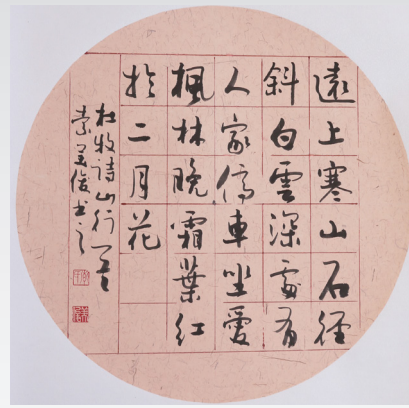 遠上寒山石徑
斜白雲深處有
人家停車坐愛
楓林晚霜葉紅
於二月花
杜牧詩山行一首
美俊书之